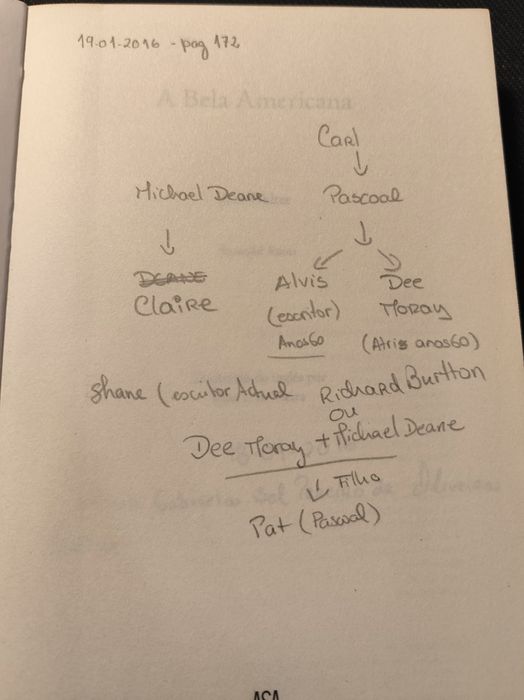 19-01-2016 - pag 172
A Bela Americana
Carl
Michael Deane Pascoal
Claire
Alvis Dee
(escritor) Moray
Anos 60 (Atriz anos 60)
Shane (escritor Actual Richard Burtton
ou
Dee Moray + Michael Deane
Filho
Pat (Pascoal)
ASA